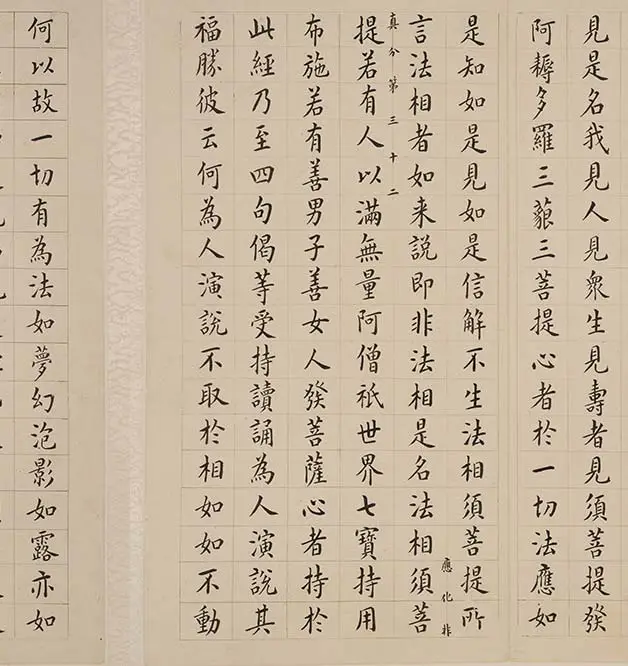 見是名我見人見衆生見壽者見須菩提發
阿耨多羅三藐三菩提心者於一切法應如
是知如是見如是信解不生法相須菩提所
應化非
言法相者如来說即非法相是名法相須菩
真分第三十二
提若有人以滿無量阿僧祇世界七寶持用
布施若有善男子善女人發菩薩心者持於
此經乃至四句偈等受持讀誦為人演說其
福勝彼云何為人演說不取於相如如不動
何以故一切有為法如夢幻泡影如露亦如